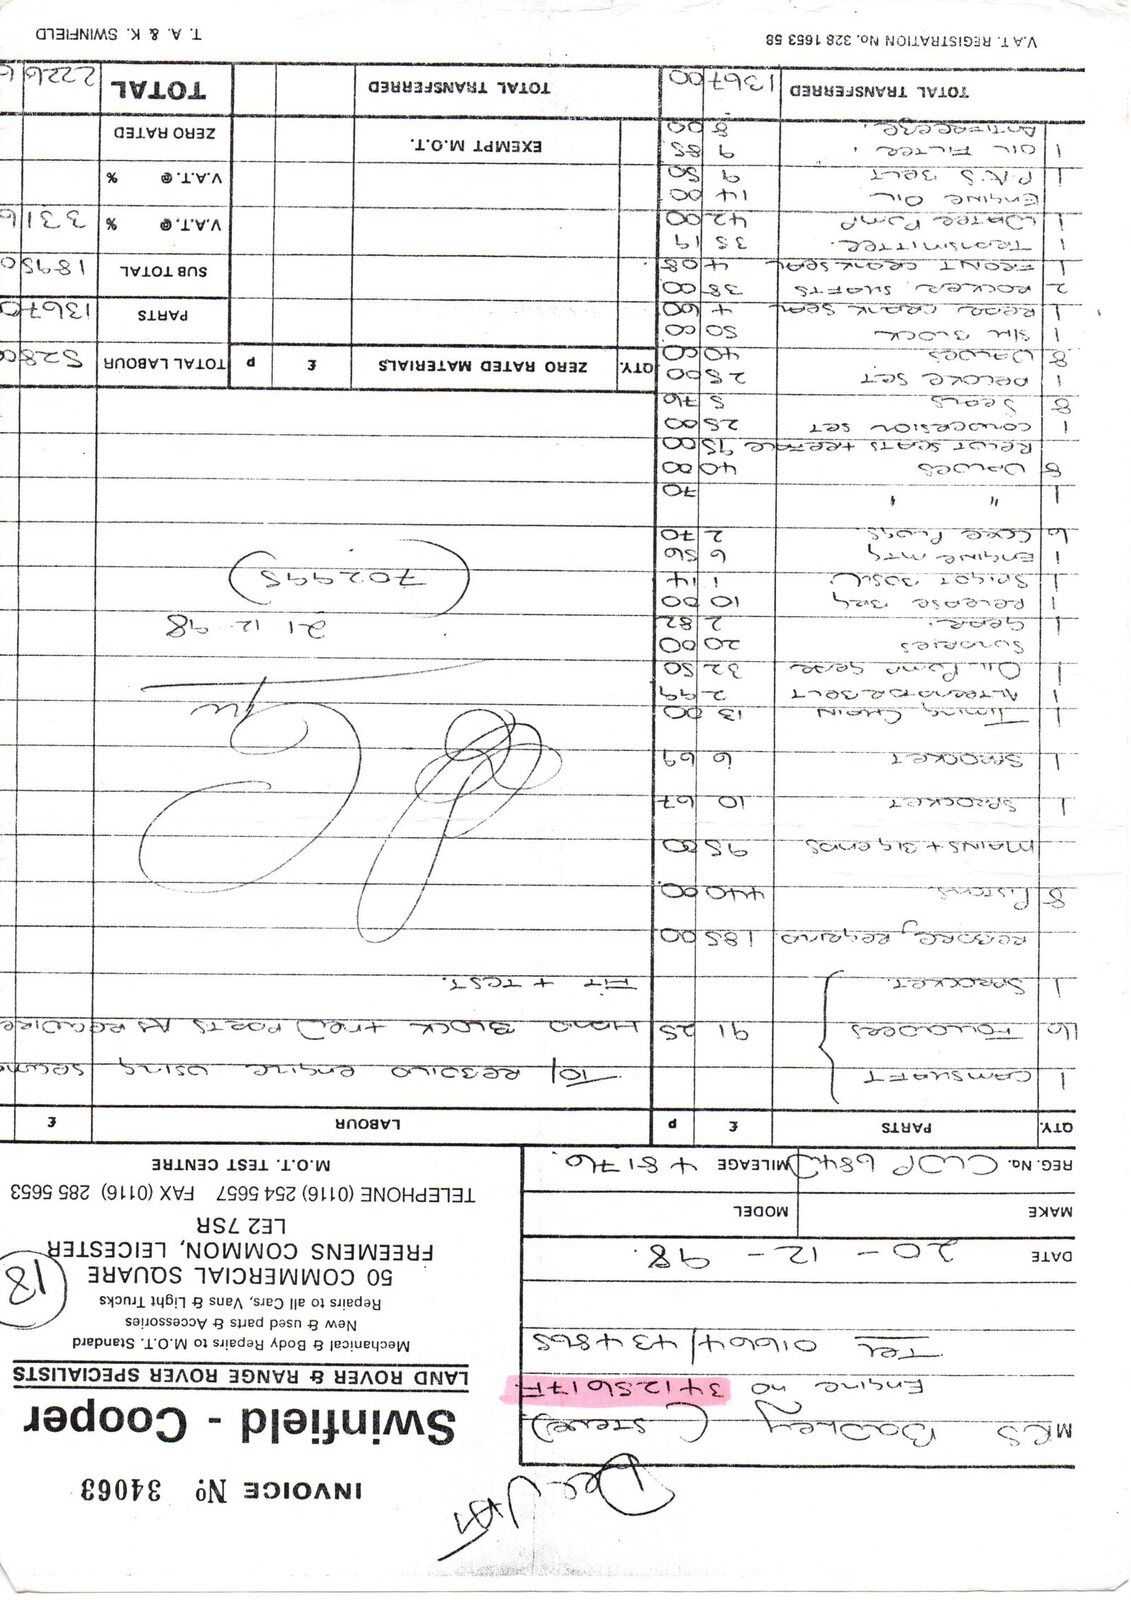 INVOICE No 34063
Swinfield - Cooper
LAND ROVER & RANGE ROVER SPECIALISTS
Mechanical & Body Repairs to M.O.T. Standard
New & used parts & Accessories
Repairs to all Cars, Vans & Light Trucks
50 COMMERCIAL SQUARE
FREEMENS COMMON, LEICESTER
LE2 7SR
TELEPHONE (0116) 254 5657 FAX (0116) 285 5653
M.O.T. TEST CENTRE
18
MRS Badhey (Steve)
Engine no 34125617F
Tel 01664/434865
DATE 20 - 12 - 98.
MAKE MODEL
REG. No. CWP 684 MILEAGE 48176.
QTY. PARTS £ p LABOUR £
1 CAMSHAFT
16 FOLLOWERS 91 25
1 SPROCKET.
REBORE, REGRIND 185 00
8 PISTONS 440 00
MAINS + BIGENDS 95 00
1 SPROCKET 10 67
1 SPROCKET 6 69
1 TIMING CHAIN 13 00
1 ALTERNATOR BELT 2 99
1 OIL PUMP GEAR 32 50
SUNDRIES 20 00
1 GEAR. 2 82
1 RELEASE BRG 10 00
1 SPIGOT BUSH 1 14
1 ENGINE MTG 6 56
6 CORE PLUGS. 2 70
1 " " 70
8 VALVES 40 00
RECUT SEATS + REFACE 95 00
1 CONVERSION SET 25 00
8 SEALS 5 76
1 DECOKE SET 25 00
8 VALVES 40 00
1 SIM BLOCK 50 00
1 REAR CRANK SEAL 4 60
2 ROCKER SHAFTS 38 00
1 FRONT CRANK SEAL 4 08
1 TRANSMITTER. 35 19
1 WATER PUMP 42 00
ENGINE OIL 14 00
1 P.A.S BELT 9 50
1 OIL FILTER. 9 85
ANTIFREEZE. 8 00
TOTAL TRANSFERRED 1367 00
To/ REBUILD ENGINE USING
HAND BLOCK + NEW PARTS AS
FIT + TEST.
21 12 98
(70299S)
QTY. ZERO RATED MATERIALS £ p
EXEMPT M.O.T.
TOTAL TRANSFERRED
TOTAL LABOUR 5280
PARTS 13670
SUB TOTAL 18950
V.A.T. @ % 3316
V.A.T. @ %
ZERO RATED
TOTAL 2226 6
V.A.T. REGISTRATION No. 328 1653 58
T. A. & K. SWINFIELD